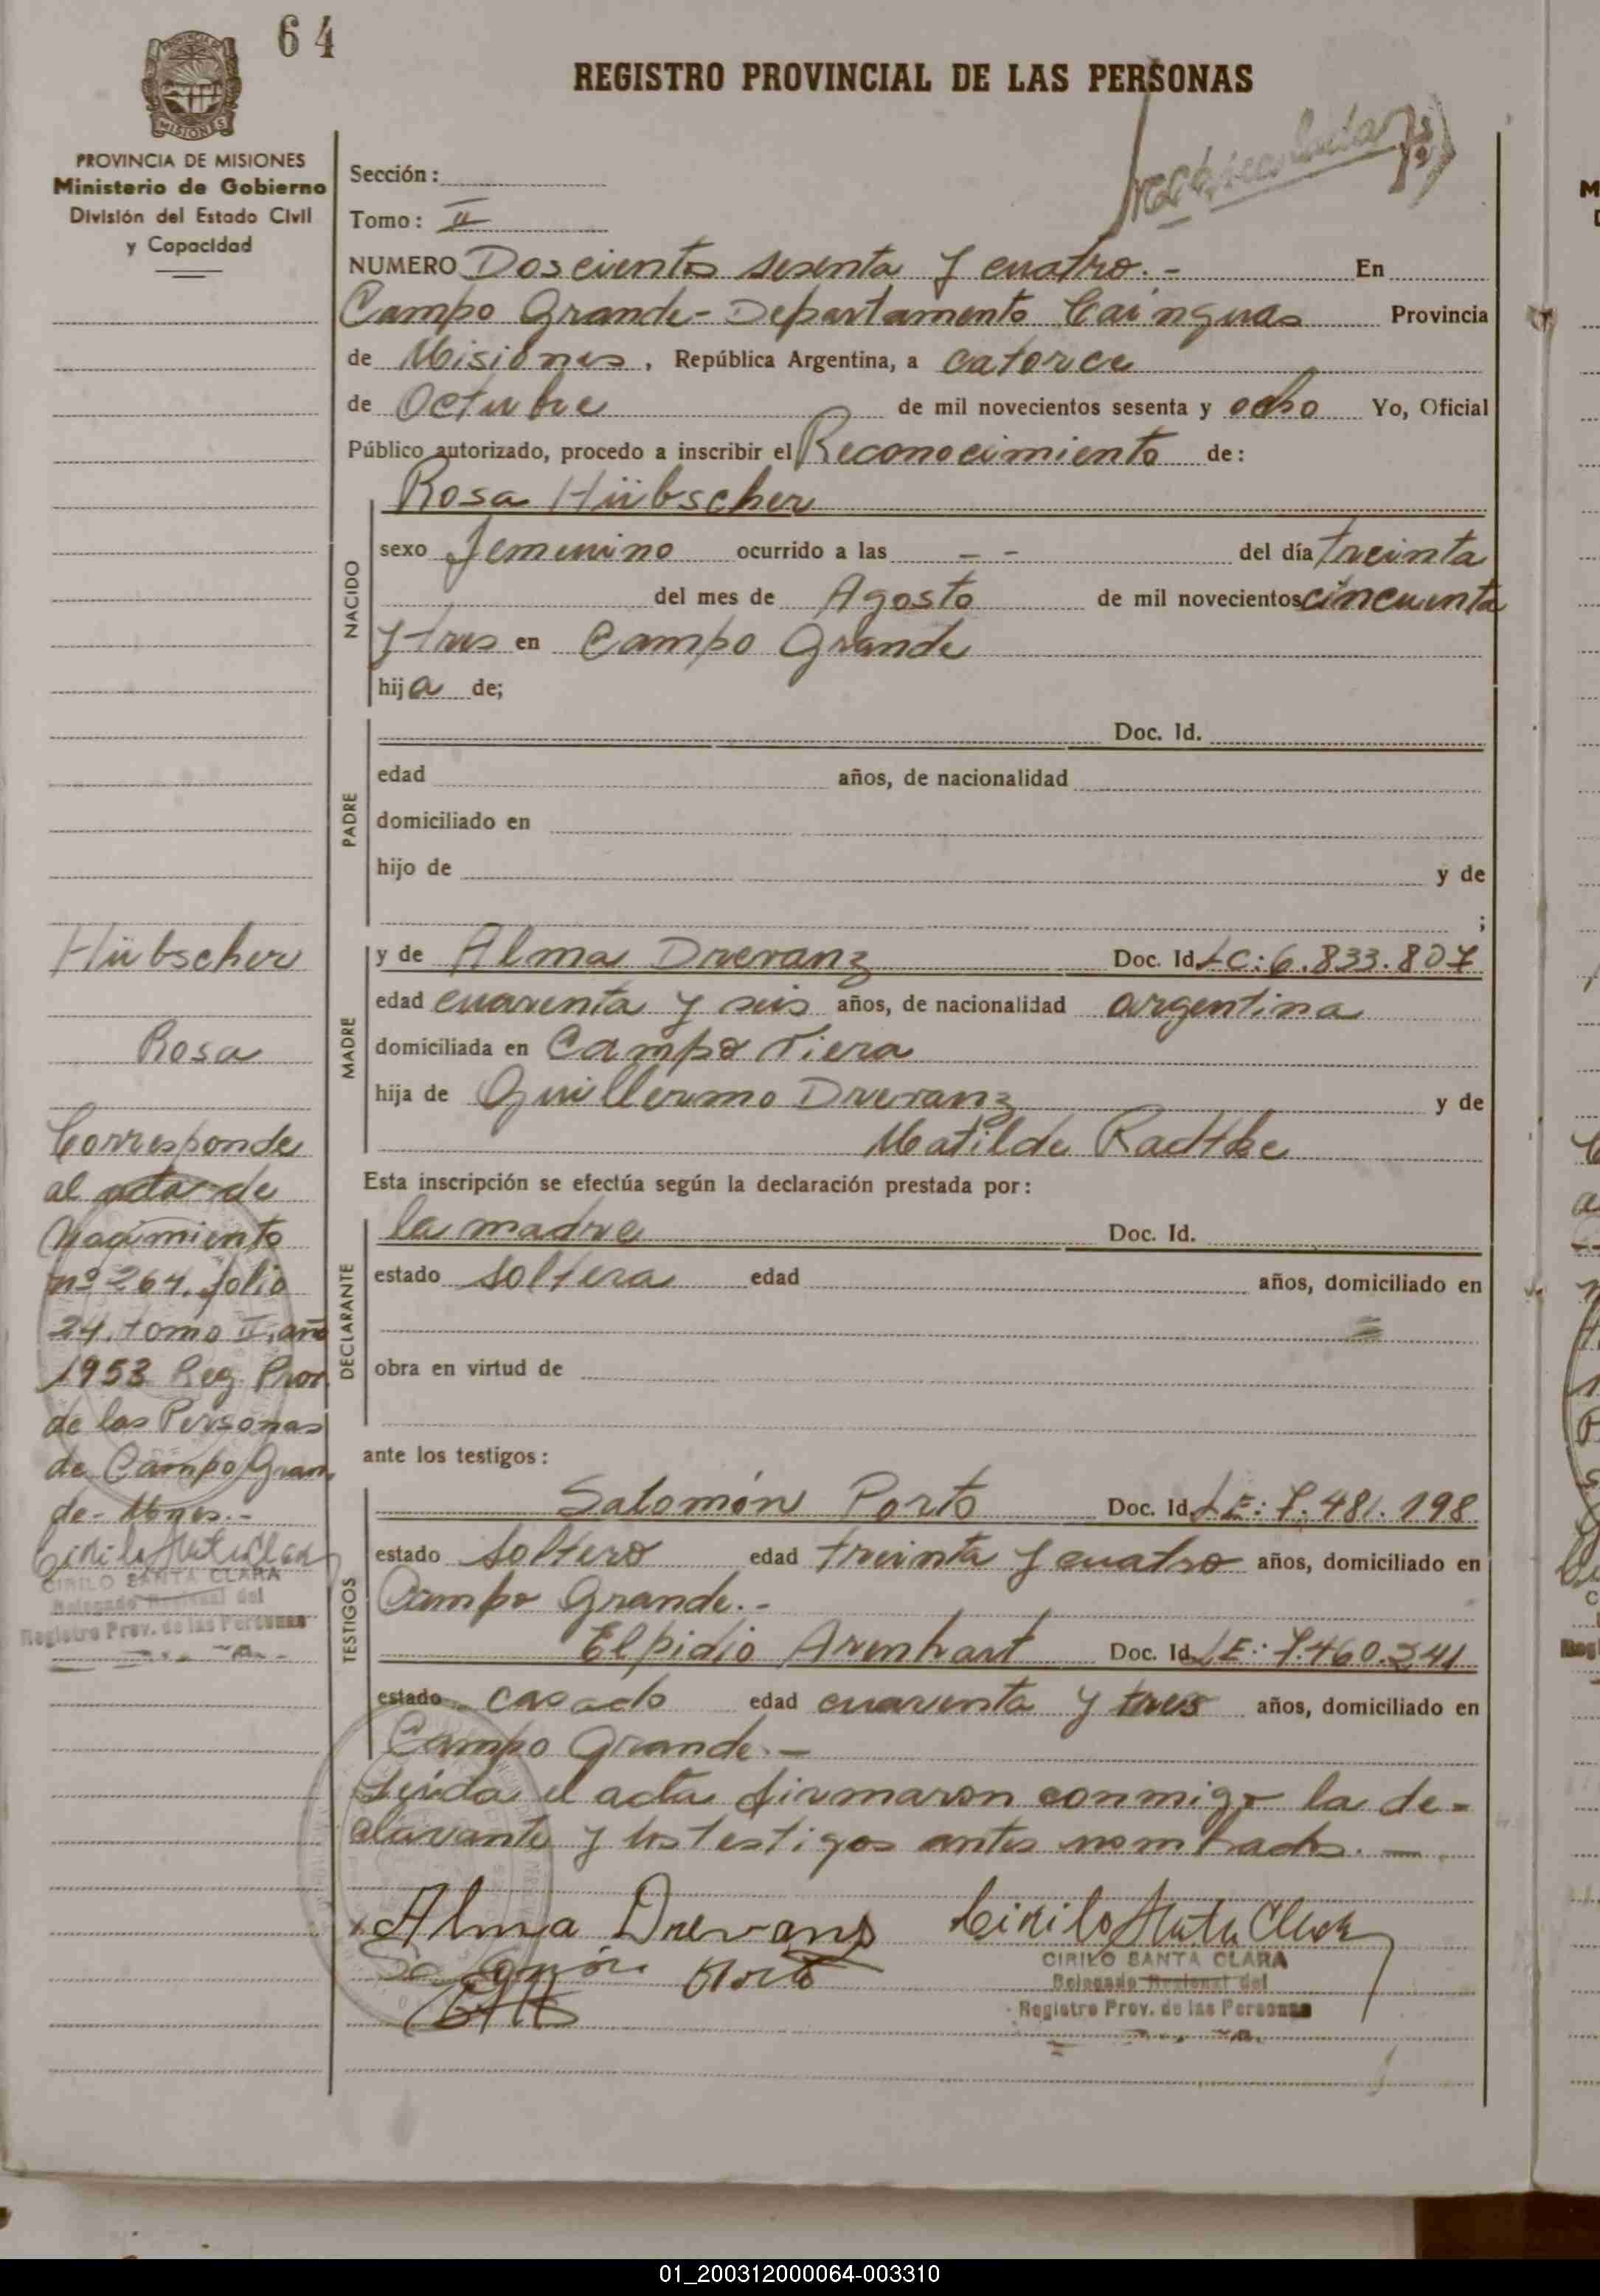 64
REGISTRO PROVINCIAL DE LAS PERSONAS
PROVINCIA DE MISIONES
Ministerio de Gobierno
División del Estado Civil
y Capacidad
Sección:
Tomo: II
NUMERO Doscientos sesenta y cuatro.- En
Campo Grande - Departamento Cainguas Provincia
de Misiones, República Argentina, a catorce
de Octubre de mil novecientos sesenta y ocho Yo, Oficial
Público autorizado, procedo a inscribir el Reconocimiento de:
Rosa Hübscher
NACIDO
sexo femenino ocurrido a las - - del día treinta
del mes de Agosto de mil novecientos cincuenta
y tres en Campo Grande
hija de;
PADRE
Doc. Id.
edad años, de nacionalidad
domiciliado en
hijo de y de
;
MADRE
y de Alma Drevanz Doc. Id. LC: 6.833.807
edad cuarenta y seis años, de nacionalidad argentina
domiciliada en Campo Viera
hija de Guillermo Drevanz y de
Matilde Radtke
Esta inscripción se efectúa según la declaración prestada por:
DECLARANTE
la madre Doc. Id.
estado soltera edad años, domiciliado en
obra en virtud de
ante los testigos:
TESTIGOS
Salomón Porto Doc. Id. LE: 7.481.198
estado soltero edad treinta y cuatro años, domiciliado en
Campo Grande.-
Elpidio Arenhart Doc. Id. LE: 7.460.241
estado casado edad cuarenta y tres años, domiciliado en
Campo Grande.-
Leída el acta firmaron conmigo la de-
clarante y los testigos antes nombrados.-
Alma Drevanz
Salomón Porto
CIRILO SANTA CLARA
Delegado Regional del
Registro Prov. de las Personas
Hübscher
Rosa
Corresponde
al acta de
Nacimiento
nº 264, folio
24, tomo II, año
1953 Reg. Prov.
de las Personas
de Campo Gran
de - Mnes.-
CIRILO SANTA CLARA
Delegado Regional del
Registro Prov. de las Personas
01_200312000064-003310